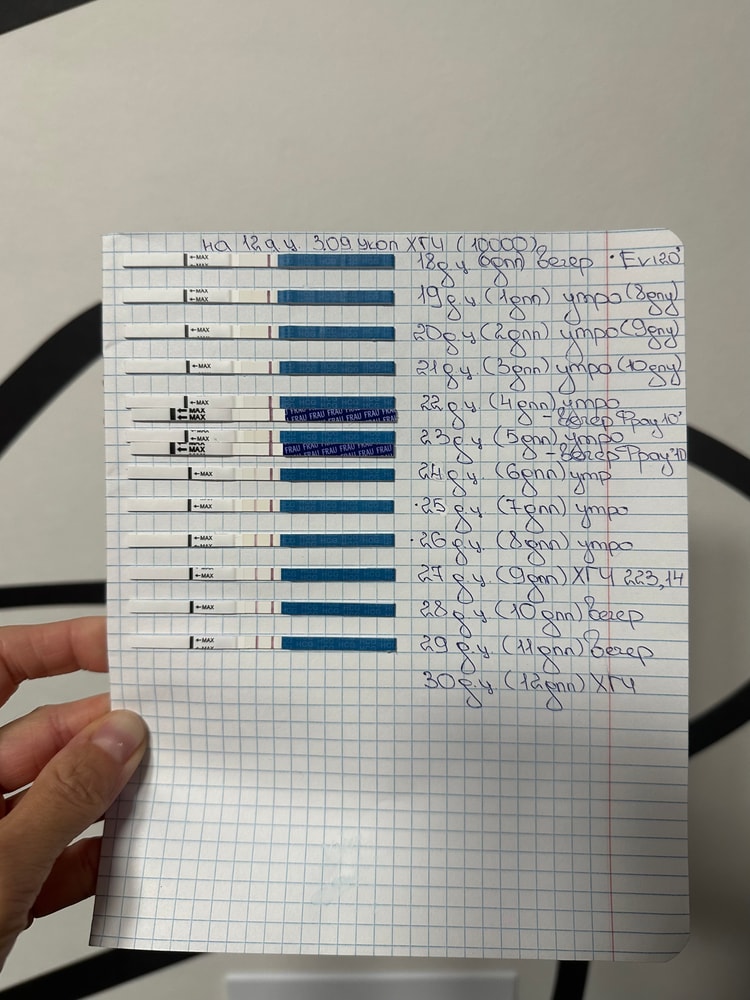 на 12 д.ц. 3.09 укол ХГЧ (10000)
←MAX 18 дц 0дпп вечер • Evi20"
←MAX 19 дц (1дпп) утро (8дпу)
←MAX 20 дц (2дпп) утро (9дпу)
←MAX 21 дц. (3дпп) утро (10дпу)
←MAX 22 дц. (4дпп) утро
←MAX FRAU FRAU FRAU FRAU - вечер Фрау 10"
←MAX 23 дц (5дпп) утро
←MAX FRAU FRAU FRAU FRAU - вечер Фрау"10
←MAX 24 дц (6дпп) утр
←MAX •25 дц (7дпп) утро
←MAX •26 дц (8дпп) утро
←MAX 27 дц (9дпп) ХГЧ 223,14
←MAX 28 дц (10дпп) вечер
←MAX 29 дц (11дпп) вечер
30 дц (12дпп) ХГЧ